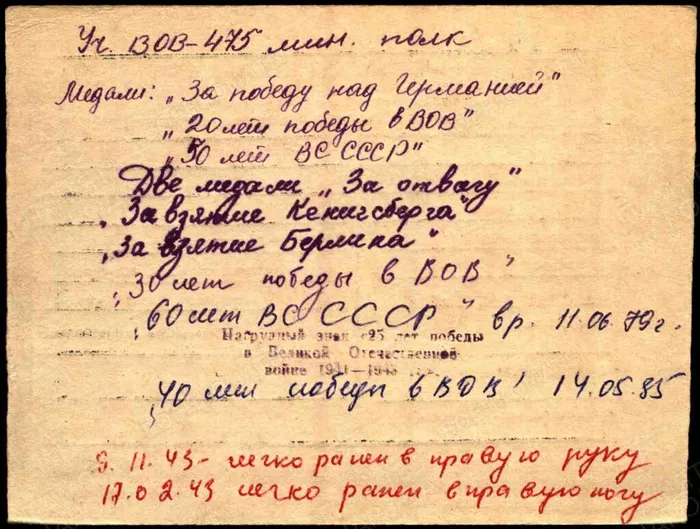 Уч. ВОВ-475 мин. полк
Медали: „За победу над Германией"
„20 лет победы в ВОВ"
„50 лет ВС СССР"
Две медали „За отвагу"
„За взятие Кенигсберга"
„За взятие Берлина"
„30 лет победы в ВОВ"
„60 лет ВС СССР" вр. 11.06.79г.
Нагрудный знак «25 лет победы
в Великой Отечественной
войне 1941—1945
„40 лет победы в ВОВ" 14.05.85
9.11.43- легко ранен в правую руку
17.02.43 легко ранен в правую ногу